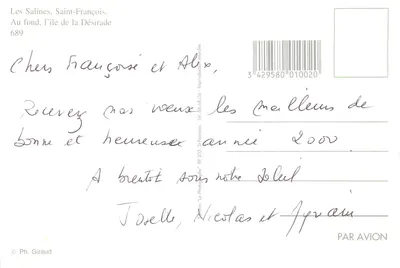 Les Salines, Saint-François.
Au fond, l'île de la Désirade
689
3 429580 010020
Chers Françoise et Alex,
Recevez nos vœux les meilleurs de
bonne et heureuse année 2000.
A bientôt sous notre soleil
Joselle, Nicolas et
PAR AVION
Ph. Giraud